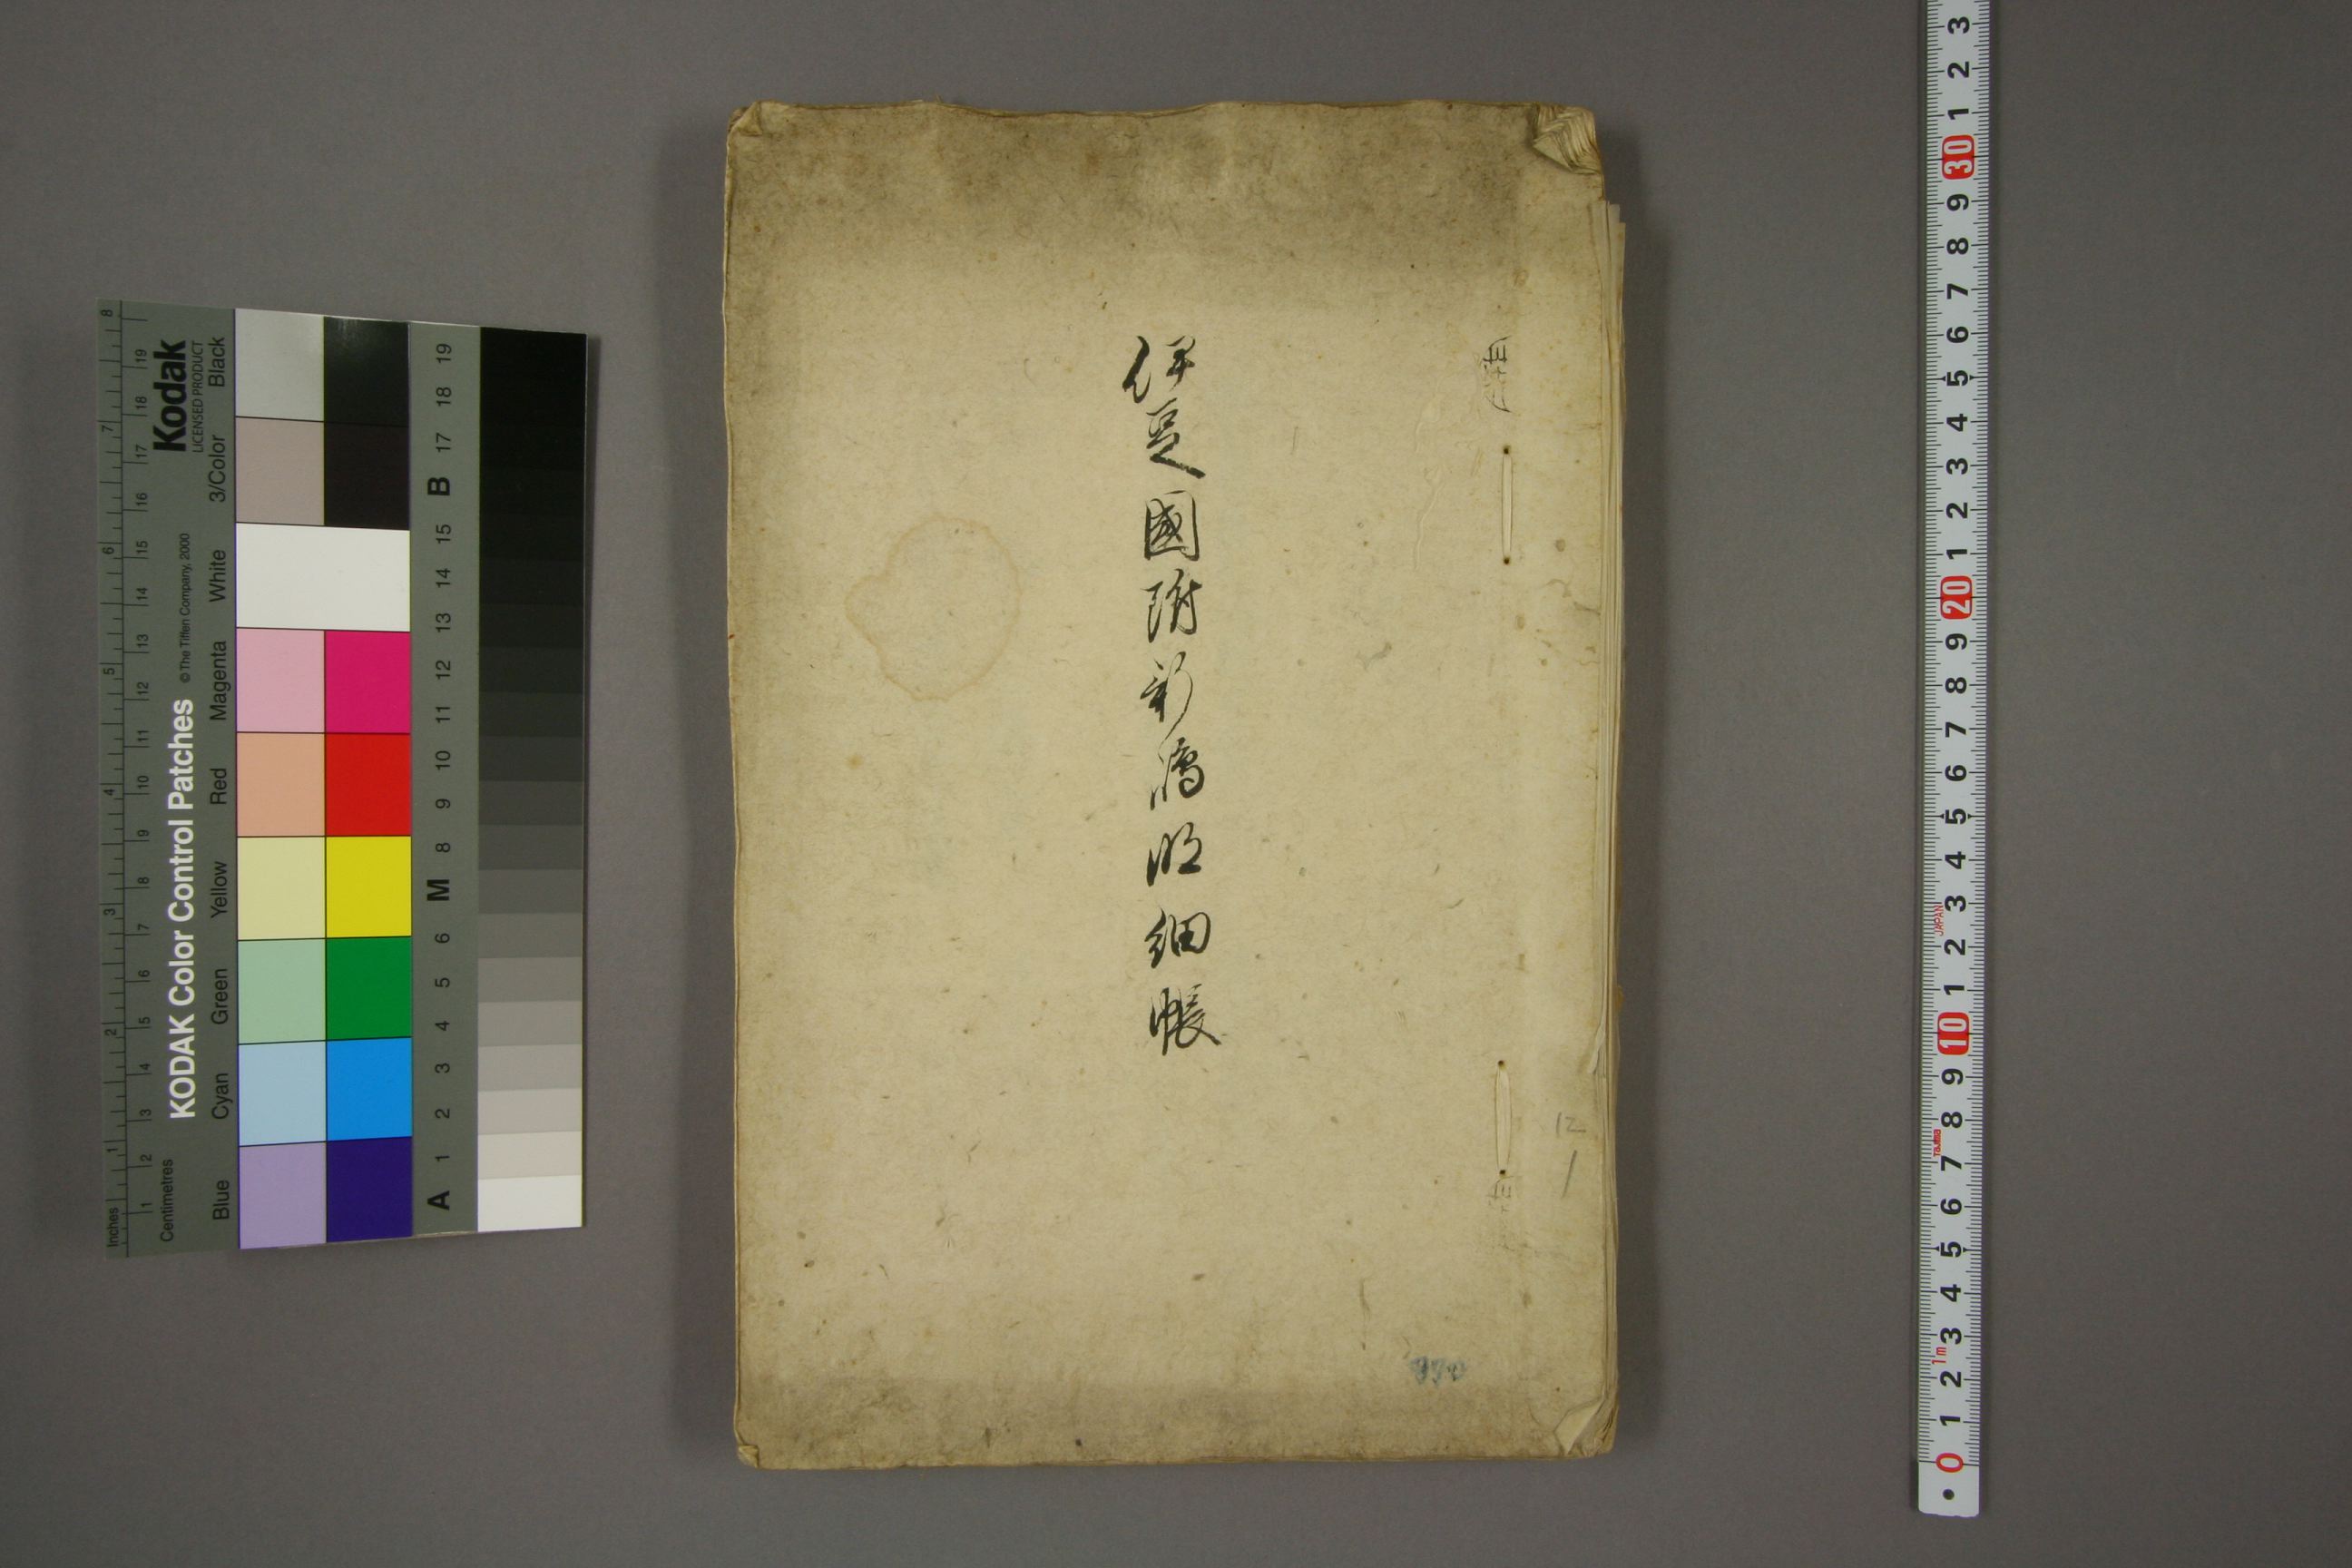 伊豆國附新嶋明細帳
12
1
KODAK Color Control Patches
© The Tiffen Company, 2000
Kodak
LICENSED PRODUCT
Inches
1 2 3 4 5 6 7 8
Centimetres
1 2 3 4 5 6 7 8 9 10 11 12 13 14 15 16 17 18 19
Blue Cyan Green Yellow Red Magenta White 3/Color Black
A 1 2 3 4 5 6 M 8 9 10 11 12 13 14 15 B 17 18 19
0 1 2 3 4 5 6 7 8 9 10 1 2 3 4 5 6 7 8 9 20 1 2 3 4 5 6 7 8 9 30 1 2 3
1m
Tajima
JAPAN